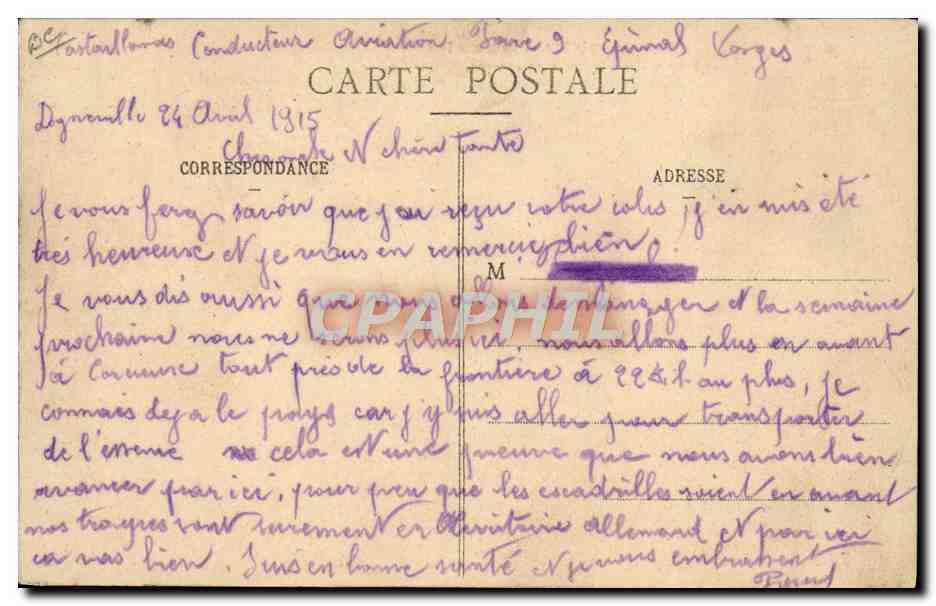 Conducteur Aviation Parc 9 Epinal Vosges
CARTE POSTALE
Dogneville 24 Avril 1915
Cher oncle et chère tante
CORRESPONDANCE
ADRESSE
Je vous ferez savoir que j'ai reçu votre colis, j'en mis été
très heureuse et je vous en remerciez bien.
M
Je vous dis aussi que nous allons demenager et la semaine
prochaine nous ne serons plus ici, nous allons plus en avant
à tout près de la frontière à 22 k au plus, je
connais deja le pays car j'y suis aller pour transporter
de l'essence cela est une preuve que nous avons bien
avancer par ici, pour peu que les escadrilles soient en avant
nos troupes sont surement en territoire allemand et par ici
ca vas bien. Suis en bonne santé et je vous embrassent
CPAPHIL